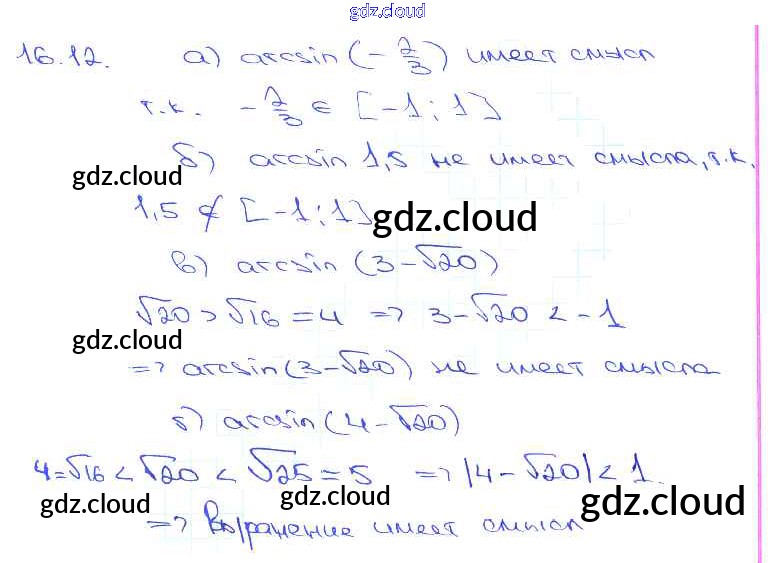 gdz.cloud
16.12. а) arcsin (-2/3) имеет смысл
т.к. -2/3 ∈ [-1; 1]
б) arcsin 1,5 не имеет смысла, т.к.
gdz.cloud
1,5 ∉ [-1; 1]
gdz.cloud
в) arcsin (3-√20)
√20 > √16 = 4 => 3-√20 < -1
gdz.cloud
=> arcsin(3-√20) не имеет смысла
г) arcsin(4-√20)
4=√16 < √20 < √25 = 5 => |4-√20| < 1.
gdz.cloud gdz.cloud gdz.cloud
=> Выражение имеет смысл